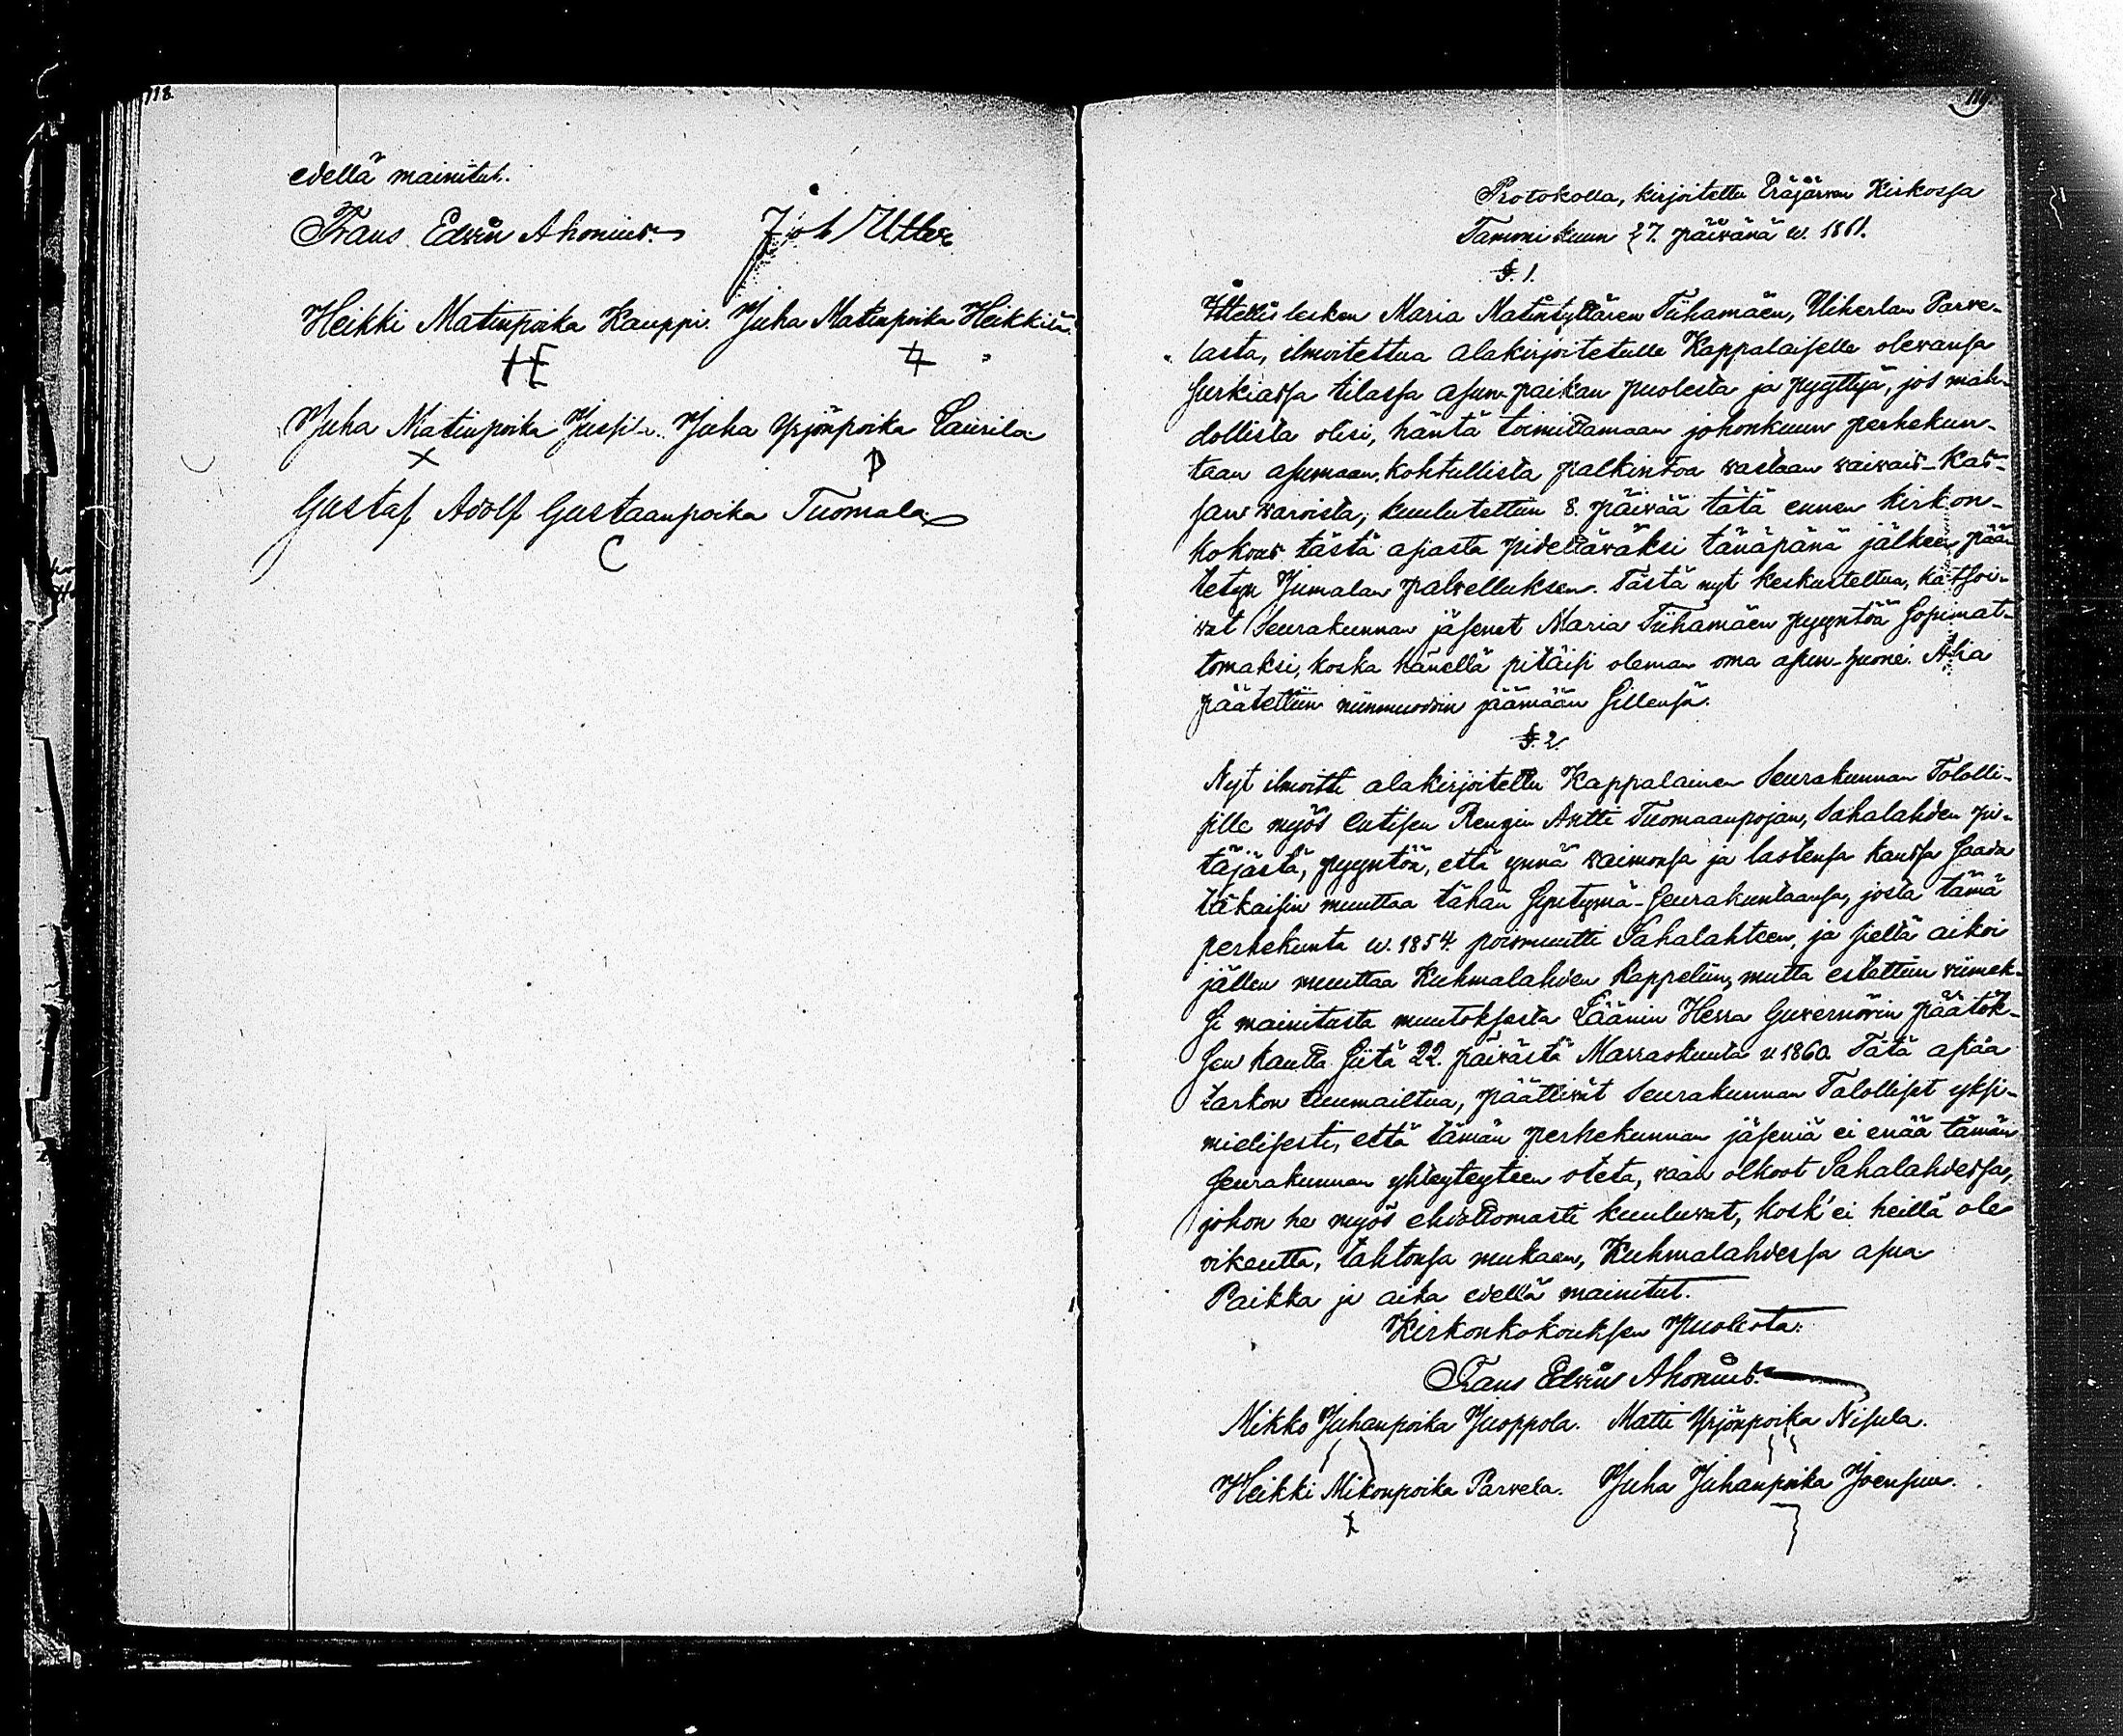 118.
edellä mainitut.
Frans Edvin Ahonius. Joh Utter
Heikki Matinpoika Kauppi. Juha Matinpoika Heikkilä.
Juha Matinpoika Jussila. Juha Yrjönpoika Laurila
Gustaf Adolf Gustaanpoika Tuomala
119.
Protokolla, kirjoitettu Eräjärven Kirkossa
Tammikuun 27. päivänä w. 1861.
§. 1.
Itellis lesken Maria Matintyttären Tiihamäen, Uiherlan Parve-
lasta, ilmoitettua alakirjoitetulle Kappalaiselle olevansa
surkiassa tilassa asun-paikan puolesta ja pyyttyä, jos mah-
dollista olisi, häntä toimittamaan johonkuun perhekun-
taan asumaan, kohtullista palkintoa wastaan waiwais-Kas-
san waroista, kuulutettiin 8. päivää tätä ennen kirkon-
kokous tästä asiasta pidettäväksi tänäpänä jälkeen pää-
tetyn Jumalan palvelluksen. Tästä nyt keskusteltua, katsoi-
wat Seurakunnan jäsenet Maria Tiihamäen pyyntöä sopimat-
tomaksi, koska hänellä pitäisi oleman oma asun-huone. Asia
päätettiin niinmuodoin jäämään sillensä.
§. 2.
Nyt ilmoitti alakirjoitettu Kappalainen Seurakunnan Tololli-
sille myös entisen Rengin Antti Tuomaanpojan, Sahalahden pi-
täjästä, pyyntöä, että ynnä waimonsa ja lastensa kanssa saada
täkaisin muuttaa tähän syntymä-Seurakuntaansa, josta tämä
perhekunta w. 1854 poismuutti Sahalahteen, ja sieltä aikoi
jällen muuttaa Kuhmalahden kappeliin, mutta estettiin viimek-
si mainitusta muutoksesta Läänin Herra Guvernörin päätök-
sen kautta siitä 22. päivästä Marraskuuta v. 1860. Tätä asiaa
tarkon tuumailtua, päättivät Seurakunnan Talolliset yksi-
mielisesti, että tämän perhekunnan jäseniä ei enää tämän
Seurakunnan yhteyteyteen oteta, vaan olkoot Sahalahdessa,
johon he myös ehdottomasti kuuluvat, kosk' ei heillä ole
oikeutta, tahtonsa mukaan, Kuhmalahdessa asua
Paikka ja aika edellä mainitut.
Kirkonkokouksen puolesta:
Frans Edvin Ahonius.
Mikko Juhanpoika Juoppola. Matti Yrjönpoika Nisula.
Heikki Mikonpoika Parvela. Juha Juhanpoika Joensuu.